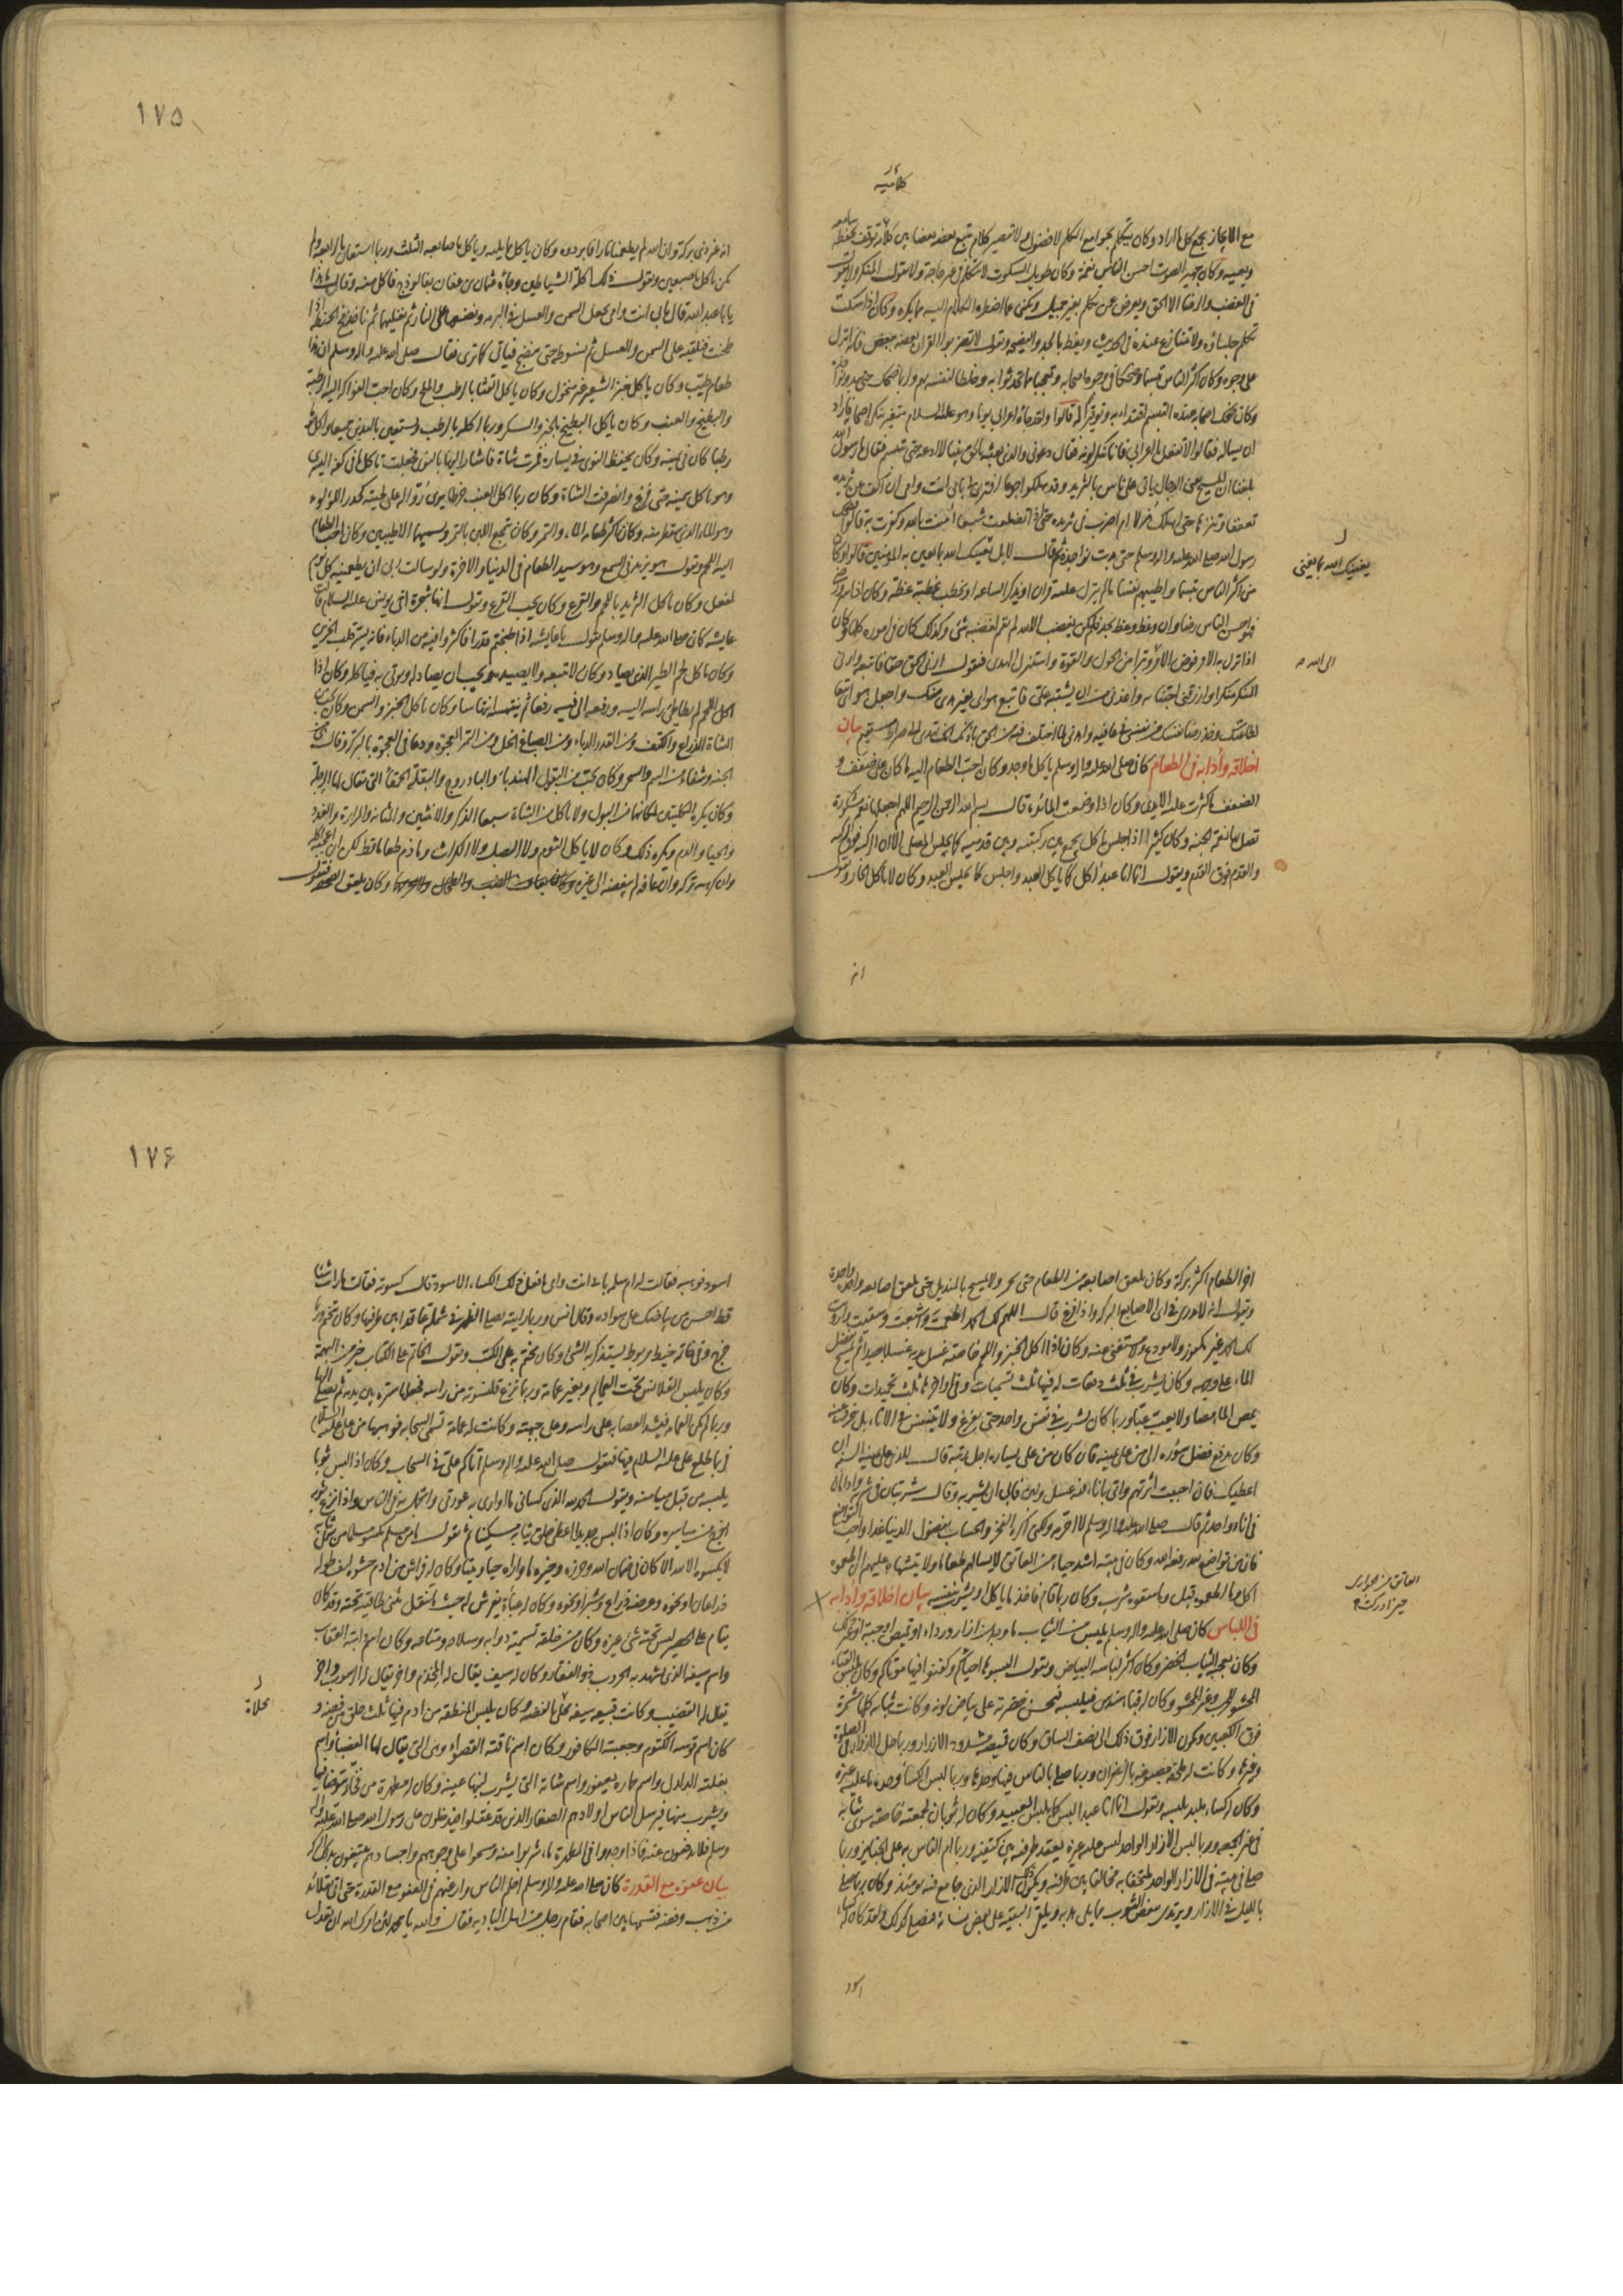 كلاميه
مع الايجاز يجمع كل ما اراد وكان يتكلم بجوامع الكلم لا فضول ولا تقصير كلام يتبع بعضه بعضا بين كلامه توقف يحفظه سامعه
ويعيه وكان جهير الصوت احسن الناس نغمة وكان طويل السكوت لا يتكلم في غير حاجة ولا يقول المنكر ولا يقول
في الغضب والرضا الا الحق ويعرض عن تكلم بغير جميل ويكنى عما اضطره الكلام اليه مما يكره وكان اذا سكت
تكلم جلساؤه ولا يتنازع عنده في الحديث ويعظ بالجد والنصيحة ويقول لا تضربوا القران بعضه ببعض فانه انزل
على وجوه وكان اكثر الناس تبسما وضحكا في وجوه اصحابه وتعجبا مما تحدثوا به وخلطا لنفسه بهم ولربما ضحك حتى يبدو نواجذه
وكان ضحك اصحابه عنده التبسم اقتداء به وتوقيرا له قالوا ولقد جاءه اعرابي يوما وهو عليه السلام متغير ينكره اصحابه فاراد
ان يساله فقالوا لا تفعل يا اعرابي فانا ننكر لونه فقال دعوني والذي بعثه بالحق نبيا لا ادعه حتى يتبسم فقال يا رسول الله
بلغنا ان المسيح يعني الدجال ياتي على الناس بالثريد وقد هلكوا جوعا افترى لي بابي انت وامي ان اكف عن ثريده
تعففا وتنزها حتى اهلك هزلا ام اضرب في ثريده حتى اذا تضلعت شبعا امنت بالله وكفرت به قالوا فضحك
رسول الله صلى الله عليه واله وسلم حتى بدت نواجذه ثم قال لا بل يغنيك الله بما يغني به المؤمنين قالوا وكان
من اكثر الناس تبسما واطيبهم نفسا ما لم ينزل عليه قران او يذكر الساعة او يخطب بخطبة عظة وكان اذا سر ورضي
فهو احسن الناس رضا وان وعظ وعظ بجد وان غضب ولم يكن يغضب الا لله لم يقم لغضبه شئ وكذلك كان في اموره كلها وكان
اذا نزل به الامر فوض الامر وتبرا من الحول والقوة واستنزل الهدى فيقول ارني الحق حقا فاتبعه وارني
المنكر منكرا وارزقني اجتنابه واعذني من ان يشتبه علي فاتبع هواي بغير هدى منك واجعل هواي تبعا
لطاعتك وخذ رضا نفسك من نفسي في عافية واهدني لما اختلف فيه من الحق باذنك انك تهدي الى صراط مستقيم بيان
اخلاقه وآدابه في الطعام كان صلى الله عليه واله وسلم ياكل ما وجد وكان احب الطعام اليه ما كان على ضفف و
الضفف ما كثرت عليه الايدي وكان اذا وضعت المائدة قال بسم الله الرحمن الرحيم اللهم اجعلها نعمة مشكورة
تصل بها نعمة الجنة وكان كثيرا اذا جلس ياكل يجمع بين ركبتيه وبين قدميه كما يجلس المصلي الا ان الركبة فوق الركبة
والقدم فوق القدم ويقول انما انا عبد آكل كما ياكل العبد واجلس كما يجلس العبد وكان لا ياكل الحار ويقول
يغنيك الله بما يغني
الى الله
انه
١٧٥
انه غير ذي بركة وان الله لم يطعمنا نارا فابردوه وكان ياكل مما يليه وياكل باصابعه الثلث وربما استعان بالرابعة ولم
يكن ياكل باصبعين ويقول ذلك اكلة الشياطين وجاءه عثمان بن عفان بفالوذج فاكل منه وقال ما هذا
يا ابا عبد الله قال بابي انت وامي نجعل السمن والعسل في البرمة ونضعها على النار ثم نغليهما ثم ناخذ مخ الحنطة اذا
طحنت فنلقيه على السمن والعسل ثم نسوطه حتى ينضج فياتي كما ترى فقال صلى الله عليه واله وسلم ان هذا
طعام طيب وكان ياكل خبز الشعير غير منخول وكان ياكل القثا بالرطب والملح وكان احب الفواكه اليه الرطبة
والبطيخ والعنب وكان ياكل البطيخ بالخبز والسكر وربما اكله بالرطب ويستعين باليدين جميعا واكل يوما
رطبا كان في يمينه وكان يحفظ النوى في يساره فمرت شاة فاشار اليها بالنوى فجعلت تاكل ما في كفه اليسرى
وهو ياكل بيمينه حتى فرغ وانصرفت الشاة وكان ربما اكل العنب خرطا يرى رؤاله على لحيته كحدر اللؤلؤ
وهو الماء الذي يتقطر منه وكان اكثر طعامه الماء والتمر وكان يتمجع اللبن بالتمر ويسميهما الاطيبين وكان احب الطعام
اليه اللحم ويقول هو يزيد في السمع وهو سيد الطعام في الدنيا والاخرة ولو سالت ربي ان يطعمنيه كل يوم
لفعل وكان ياكل الثريد باللحم والقرع وكان يحب القرع ويقول انها شجرة اخي يونس عليه السلام قالت
عايشه كان صلى الله عليه واله وسلم يقول يا عايشه اذا طبختم قدرا فاكثروا فيه من الدباء فانه يشد قلب الحزين
وكان ياكل لحم الطير الذي يصاد وكان لا يتبعه ولا يصيده ويحب ان يصاد له ويوتى به فياكله وكان اذا
اكل اللحم لم يطاطئ راسه اليه ورفعه الى فيه رفعا ثم ينتهسه انتهاسا وكان ياكل الخبز والسمن وكان يحب من
الشاة الذراع والكتف ومن القدر الدباء ومن الصباغ الخل ومن التمر العجوة ودعا في العجوة بالبركة وقال هي من
الجنة وشفاء من السم والسحر وكان يحب من البقول الهندباء والباذروج والبقلة الحمقاء التي يقال لها الرجلة
وكان يكره الكليتين لمكانهما من البول ولا ياكل من الشاة سبعا الذكر والانثيين والمثانة والمرارة والغدد
والحيا والدم ويكره ذلك وكان لا ياكل الثوم ولا البصل ولا الكراث وما ذم طعاما قط لكن ان اعجبه اكله
وان كرهه تركه وان عافه لم يبغضه الى غيره وكان يعاف الضب والطحال ولا يحرمهما وكان يلعق الصحفة ويقول
اخر الطعام اكثر بركة وكان يلعق اصابعه من الطعام حتى تحمر ولا يمسح بالمنديل حتى يلعق اصابعه واحدة واحدة
ويقول انه لا يدري في اي الاصابع البركة واذا فرغ قال اللهم لك الحمد اطعمت واشبعت وسقيت وارويت
لك الحمد غير مكفور ولا مودع ولا مستغنى عنه وكان اذا اكل الخبز واللحم خاصة غسل يديه غسلا جيدا ثم يمسح بفضل
الماء على وجهه وكان يشرب في ثلث دفعات له فيها ثلث تسميات وفي اواخرها ثلث تحميدات وكان
يمص الماء مصا ولا يعب عبا وربما كان يشرب في نفس واحد حتى يفرغ ولا يتنفس في الاناء بل ينحرف عنه
وكان يدفع فضل سؤره الى من على يمينه فان كان من على يساره اجل رتبة قال للذي على يمينه السنة ان
تعطيك فان احببت اثرتهم واتي باناء فيه عسل ولبن فابى ان يشربه وقال شربتان في شربة وادامان
في اناء واحد ثم قال صلى الله عليه واله وسلم لا احرمه ولكني اكره الفخر والحساب بفضول الدنيا غدا واحب التواضع
فان من تواضع لله رفعه الله وكان في بيته اشد حياء من العاتق لا يسالهم طعاما ولا يتشهاه عليهم ان اطعموه
اكل وما اطعموه قبل وما سقوه شرب وكان ربما قام فاخذ ما ياكل او يشرب بنفسه بيان اخلاقه وادابه
في اللباس كان صلى الله عليه واله وسلم يلبس من الثياب ما وجد من ازار ورداء او قميص او جبة او غير ذلك
وكان يعجبه الثياب الخضر وكان اكثر لباسه البياض ويقول البسوها احياءكم وكفنوا فيها موتاكم وكان يلبس القباء
المحشو للحرب وغير المحشو وكان له قباء سندس فيلبسه فتحسن خضرته على بياض لونه وكانت ثيابه كلها مشمرة
فوق الكعبين ويكون الازار فوق ذلك الى نصف الساق وكان قميصه مشدود الازرار وربما حل الازرار في الصلوة
وغيرها وكانت له ملحفة مصبوغة بالزعفران وربما صلى بالناس فيها وحدها وربما لبس الكساء وحده ما عليه غيره
وكان له كساء ملبد يلبسه ويقول انما انا عبد البس كما يلبس العبيد وكان له ثوبان لجمعته خاصة سوى ثيابه
في غير الجمعة وربما لبس الازار الواحد ليس عليه غيره يعقد طرفيه بين كتفيه وربما ام الناس به على الجنايز وربما
صلى في بيته في الازار الواحد ملتحفا به مخالفا بين طرفيه ويكون ذلك الازار الذي جامع فيه يومئذ وكان ربما صلى
بالليل في الازار ويرتدي ببعض الثوب مما يلي هدبه ويلقي البقية على بعض نسائه فيصلي كذلك ولقد كان له كساء
العاتق من الجواري
حين ادركت
اسود
١٧۶
اسود فوهبه فقالت له ام سلمه بابي انت وامي ما فعل ذلك الكساء الاسود قال كسوته فقالت ما رايت شيئا
قط احسن من بياضك على سواده وقال انس وربما رايته يصلي بنا الظهر في شملة عاقدا بين طرفيها وكان يتختم وربما
خرج وفي خاتمه خيط مربوط يستذكر به الشئ وكان يختم به على الكتب ويقول الخاتم على الكتاب خير من التهمة
وكان يلبس القلانس تحت العمائم وبغير عمامة وربما نزع قلنسوته من راسه فجعلها سترة بين يديه ثم يصلي اليها
وربما لم يكن العمامة فيشد العصابة على راسه وعلى جبهته وكانت له عمامة تسمى السحاب فوهبها من علي عليه السلام
فربما طلع علي عليه السلام فيها فيقول صلى الله عليه واله وسلم اتاكم علي في السحاب وكان اذا لبس ثوبا
يلبسه من قبل ميامنه ويقول الحمد لله الذي كساني ما اواري به عورتي واتجمل به في الناس واذا نزع ثوبه
اخرج من مياسره وكان اذا لبس جديدا اعطى خلق ثيابه مسكينا ثم يقول ما من مسلم يكسو مسلما من شمل ثيابه
لا يكسوه الا لله الا كان في ضمان الله وحرزه وخيره ما واراه حيا وميتا وكان له فراش من ادم حشوه ليف طوله
ذراعان او نحوه وعرضه ذراع وشبر او نحوه وكان له عباءة يفرش له حيث انتقل يثنى طاقين تحته وقد كان
ينام على الحصير ليس تحته شئ غيره وكان من خلقه تسمية دوابه وسلاحه ومتاعه وكان اسم رايته العقاب
واسم سيفه الذي يشهد به الحروب ذو الفقار وكان له سيف يقال له المخذم واخر يقال له الرسوب واخر
يقال له القضيب وكانت قبيعة سيفه محلاة بالفضة وكان يلبس المنطقة من ادم فيها ثلث حلق من فضة و
كان اسم قوسه الكتوم وجعبته الكافور وكان اسم ناقته القصواء وهي التي يقال لها العضباء واسم
بغلته الدلدل واسم حماره يعفور واسم شاته التي يشرب لبنها عينة وكان له مطهرة من فخار يتوضا فيها
ويشرب منها فيرسل الناس اولادهم الصغار الذين قد عقلوا فيدخلون على رسول الله صلى الله عليه واله
وسلم فلا يدفعون عنه فاذا وجدوا في المطهرة ماء شربوا منه ومسحوا على وجوههم واجسادهم يبتغون بذلك البركة
بيان عفوه مع القدرة كان صلى الله عليه واله وسلم احلم الناس وارغبهم في العفو مع القدرة حتى اتي بقلائد
من ذهب وفضة فقسمها بين اصحابه فقام رجل من اهل البادية فقال والله يا محمد لئن امرك الله ان تعدل
محلاة